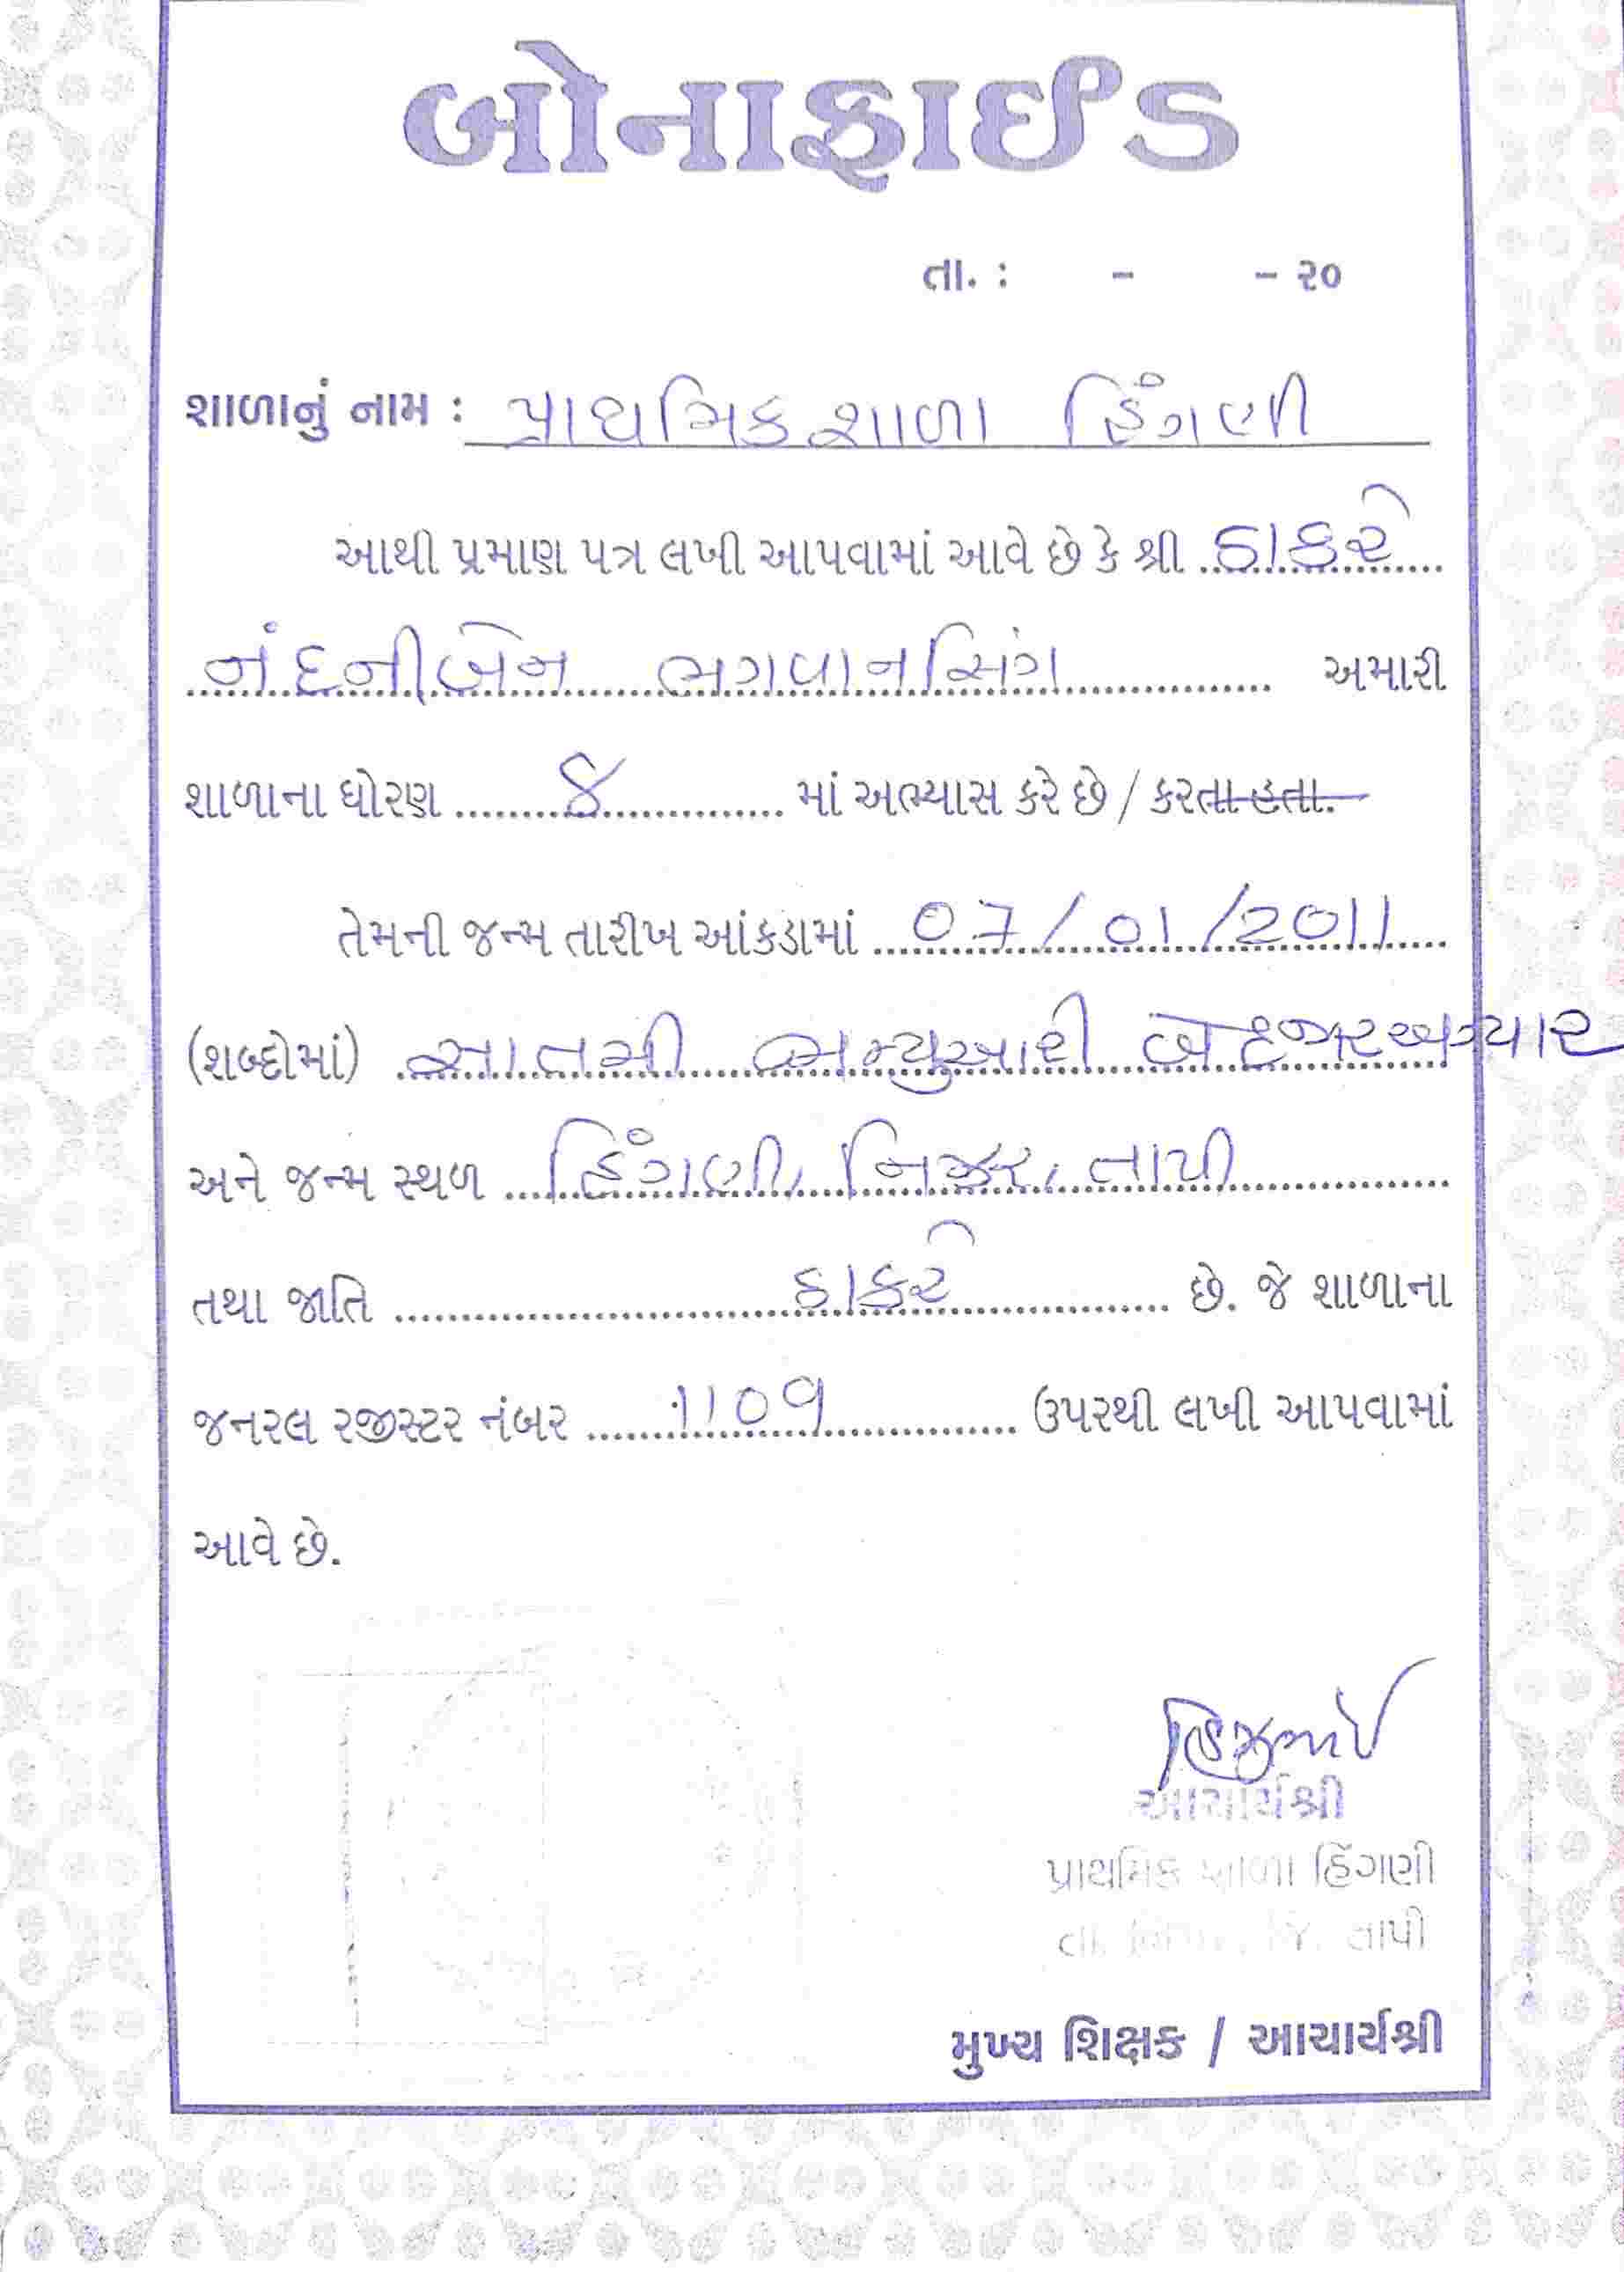 બોનાફાઈડ
તા. : - - ૨૦
શાળાનું નામ : પ્રાથમિક શાળા હિંગણી
આથી પ્રમાણ પત્ર લખી આપવામાં આવે છે કે શ્રી ઠાકરે
નંદનીબેન ભગવાનસિંગ અમારી
શાળાના ધોરણ ૪ માં અભ્યાસ કરે છે / કરતા હતા.
તેમની જન્મ તારીખ આંકડામાં 07/01/2011
(શબ્દોમાં) સાતમી જાન્યુઆરી બે હજાર અગ્યાર
અને જન્મ સ્થળ હિંગણી, નિઝર, તાપી
તથા જાતિ ઠાકરે છે. જે શાળાના
જનરલ રજીસ્ટર નંબર 1109 ઉપરથી લખી આપવામાં
આવે છે.
આચાર્યશ્રી
પ્રાથમિક શાળા હિંગણી
તા. જિ. તાપી
મુખ્ય શિક્ષક / આચાર્યશ્રી